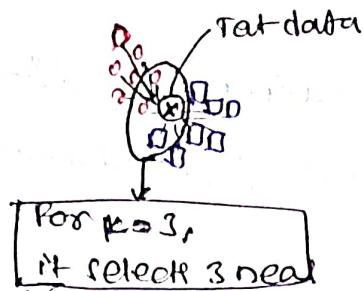 Tat data
x
For K = 3,
it select 3 neal